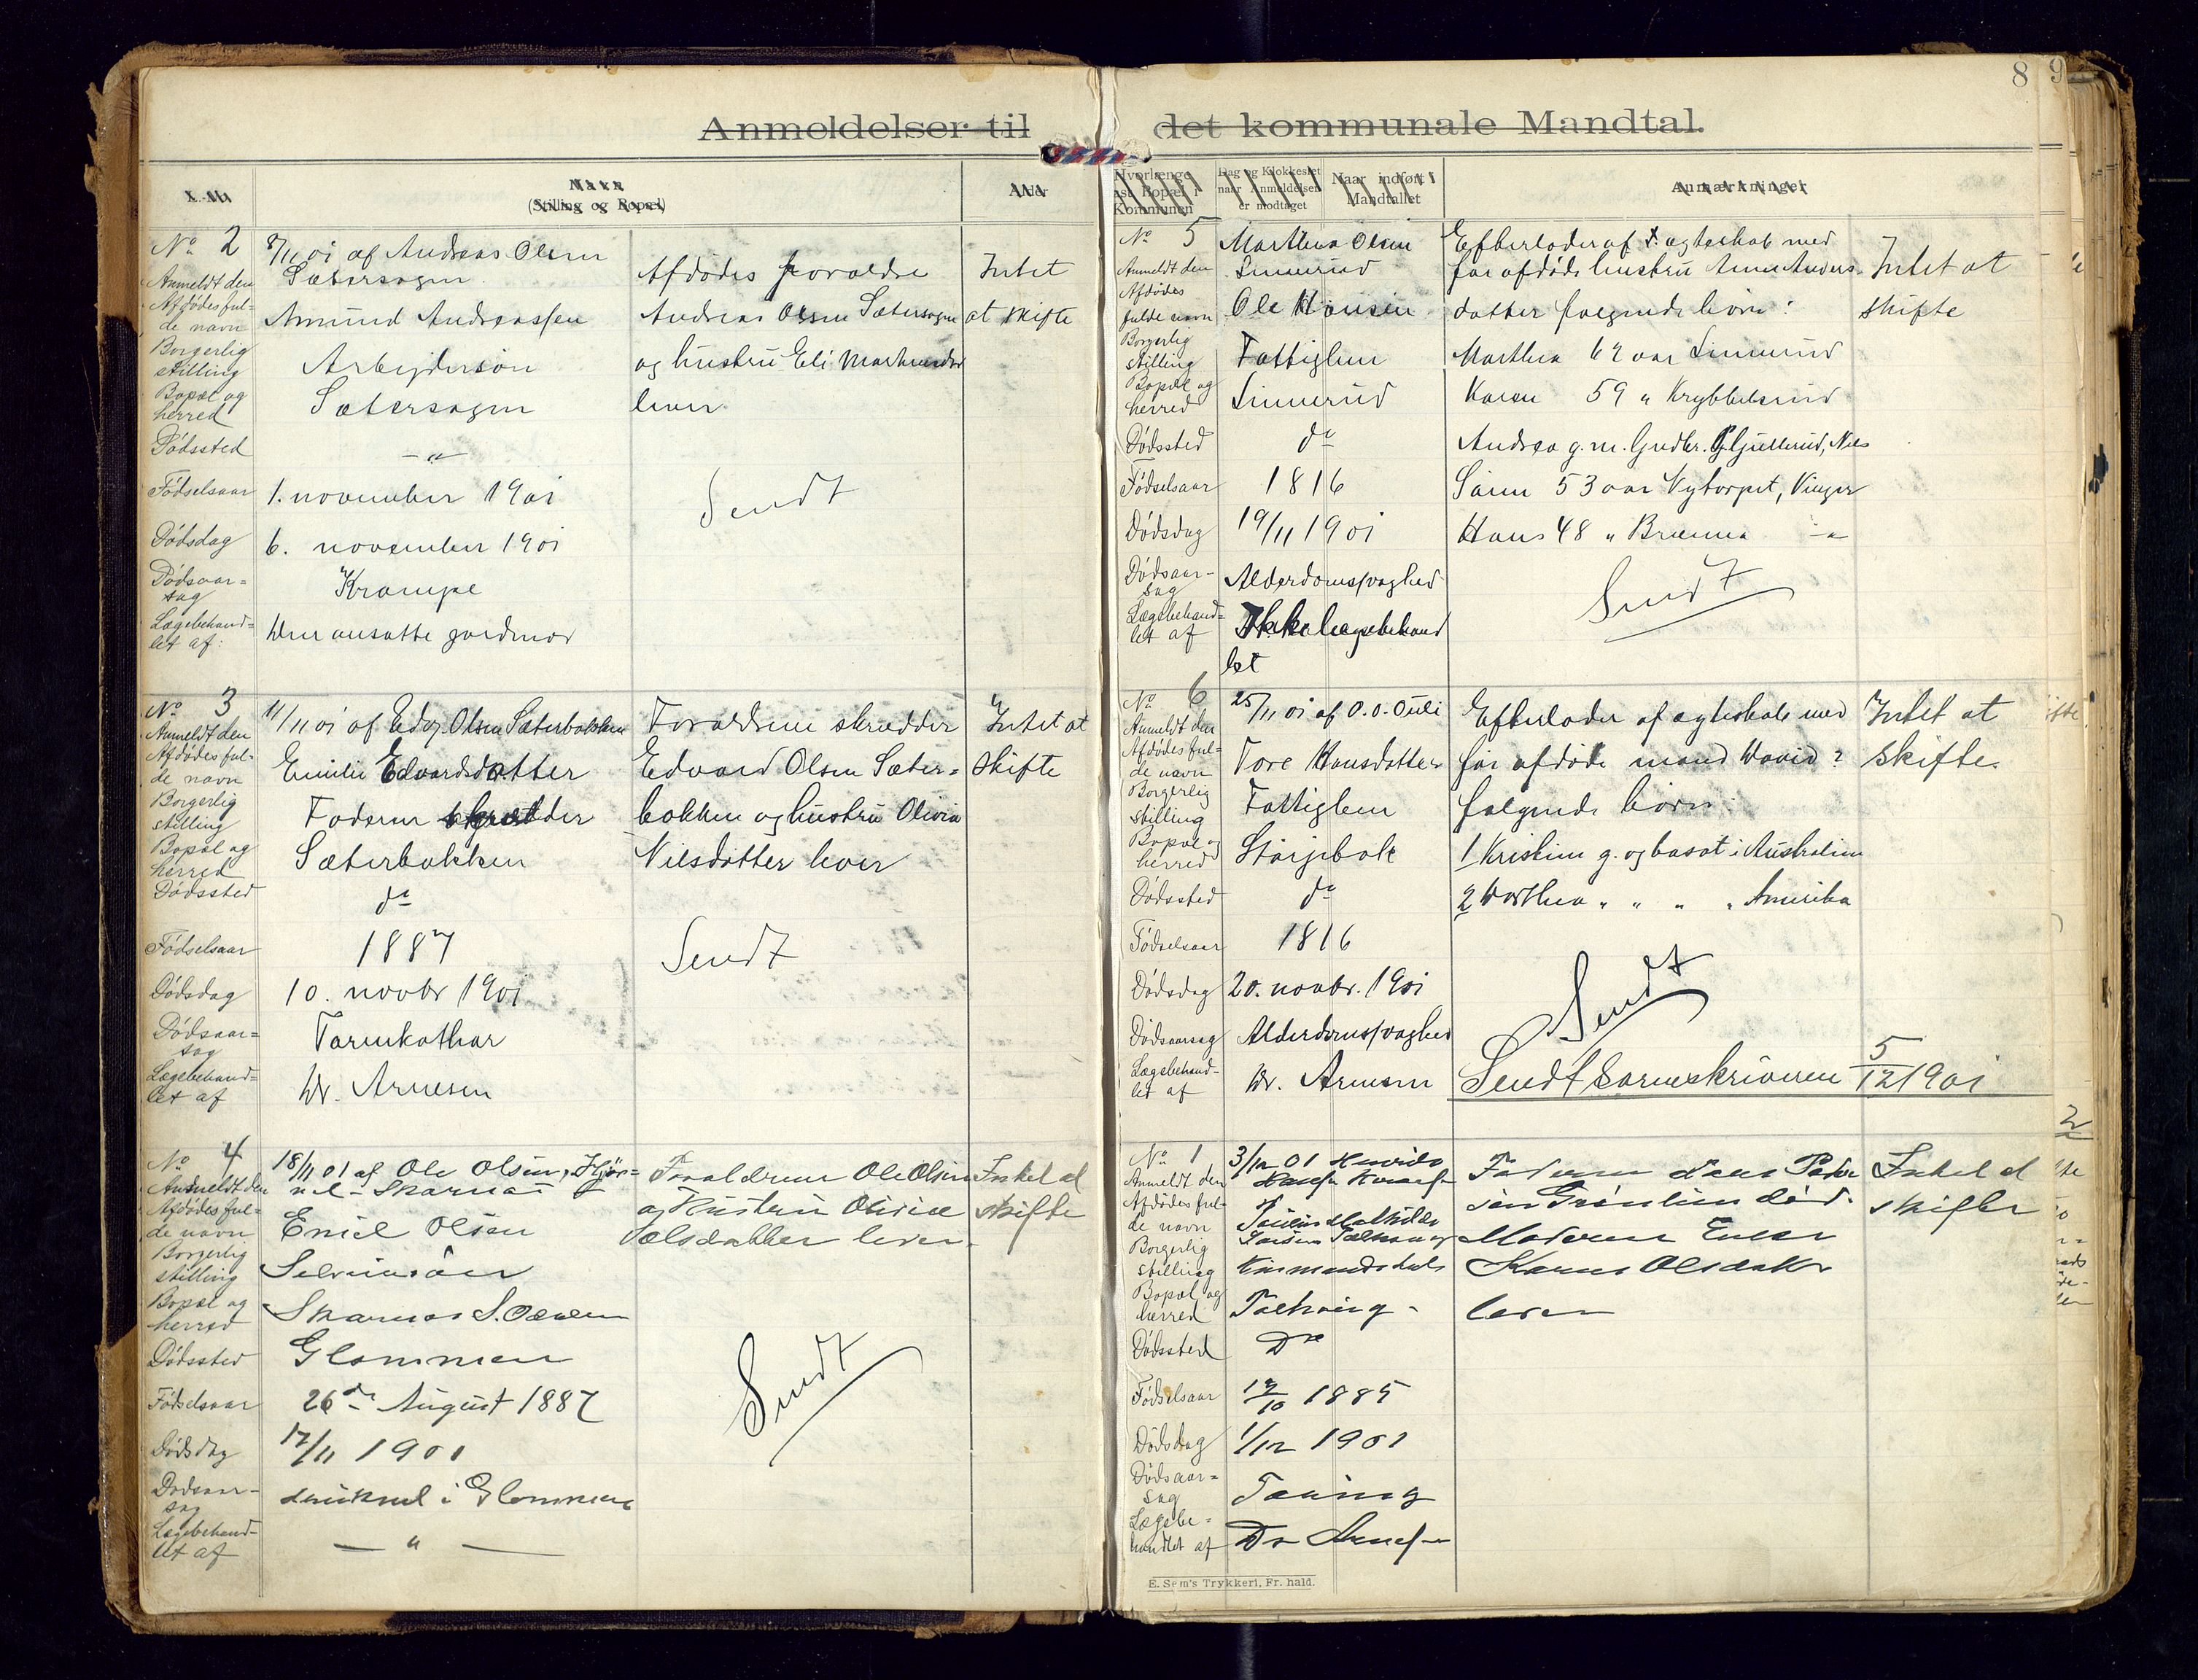 8
9
Anmeldelser til det kommunale Mandtal.
L.-No.
Navn
(Stilling og Bopæl)
Aar
Hvorlænge
Bopæl i
Kommunen
Dag og Klokkeslet
naar Anmeldelsen
er modtaget
Naar indført i
Mandtallet
Anmærkninger
No 2
Anmeldt den
8/11 01 af Andreas Olsen
Sætersagen
Afdødes fulde navn
Amund Andreassen
Borgerlig stilling
Arbejdersøn
Bopæl og herred
Sætersagen
Dødssted
— " —
Fødselsaar
1. november 1901
Dødsdag
6. november 1901
Dødsaarsag
Krampe
Lægebehandlet af:
Den ansatte jordmor
Afdødes forældre
Andreas Olsen Sætersagen
og hustru Eli
lever
Sendt
Intet
at skifte
No 3
Anmeldt den
11/11 01 af Edv. Olsen Sæterbakken
Afdødes fulde navn
Emilie Edvardsdatter
Borgerlig stilling
Faderen skrædder
Bopæl og herred
Sæterbakken
Dødssted
do
Fødselsaar
1887
Dødsdag
10. novbr 1901
Dødsaarsag
Tarmkathar
Lægebehandlet af
Dr. Arnesen
Forældrene skrædder
Edvard Olsen Sæter=
bakken og hustru Olivia
Nilsdatter lever
Sendt
Intet at
skifte
No 4
Anmeldt den
18/11 01 af Ole Olsen,
Skarnæs
Afdødes fulde navn
Emil Olsen
Borgerlig stilling
Bopæl og herred
Skarnæs S. Odalen
Dødssted
Glommen
Fødselsaar
26de August 1887
Dødsdag
17/11 1901
Dødsaarsag
druknet i Glommen
Lægebehandlet af
— " —
Forældrene Ole Olsen
og Hustru Olivia
lever.
Sendt
Intet at
skifte
No 5
Anmeldt den
Marthea Olsen
Linnerud
Afdødes fulde navn
Ole Hansen
Borgerlig stilling
Fattiglem
Bopæl og herred
Linnerud
Dødssted
do
Fødselsaar
1816
Dødsdag
19/11 1901
Dødsaarsag
Alderdomssvaghed
Lægebehandlet af
Ikke lægebehand
let
Efterlader af ægteskab med
før afdøde hustru Anne Anders
datter følgende børn:
Marthea 62 aar Linnerud
Karen 59 " Krybbelsrud
Andrea g. m. Grdbr.
53 aar Nytorpet, Vinger
Hans 48 " Brænna — " —
Sendt
Intet at
skifte
No 6
Anmeldt den
25/11 01 af O. O. Ouli
Afdødes fulde navn
Tore Hansdatter
Borgerlig stilling
Fattiglem
Bopæl og herred
Dødssted
do
Fødselsaar
1816
Dødsdag
20. novbr. 1901
Dødsaarsag
Alderdomssvaghed
Lægebehandlet af
Dr. Arnesen
Efterlader af ægteskab med
før afdøde mand David?
følgende børn:
1 Kristine g. og bosat i Australien
2 Dorthea " " " " Amerika
Sendt
Sendt Sorenskriveren 5/12 1901
Intet at
skifte.
No 1
Anmeldt den
3/12 01
Afdødes fulde navn
Borgerlig stilling
Bopæl og herred
Dødssted
Do
Fødselsaar
1885
Dødsdag
1/12 1901
Dødsaarsag
Tæring
Lægebehandlet af
Dr Arnesen
Faderen Lars Peder
sen Grønlien død.
Moderen Enke
Karen Olsdatter
lever
Intet at
skifte
E. Sem's Trykkeri, Fr. hald.